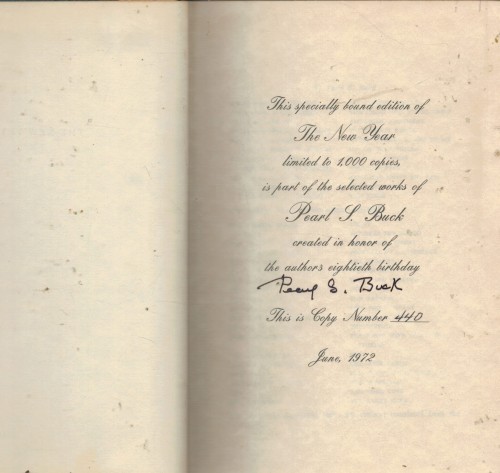 This specially bound edition of
The New Year
limited to 1,000 copies,
is part of the selected works of
Pearl S. Buck
created in honor of
the authors eightieth birthday
Pearl S. Buck
This is Copy Number 440
June, 1972